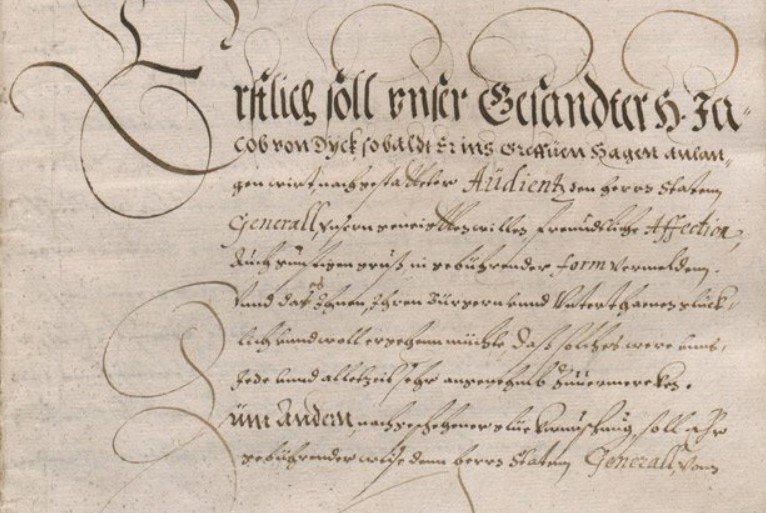 Erstlich soll vnser Gesandter H. Ja-
cob von Dyck sobaldt Er ins Greffuen Hagen anlan-
gen wirt, nach gestatteter Audientz den Herrn Staten
Generall, vnsern geneigtten willen freundtliche Affection,
Auch günstigen gruß in gebührender form vermelden.
Vnnd daß es Ihnen, Ihren Bürgern vnnd Vnterthanen glück-
lich vnnd woll ergehenn müchte, daß solches were vnns
Jede vnnd allezeit sehr angenehmb Zuuermercken.
Zum Andern, nach geschehener glückwünschung, soll ehr
gebührender weise denn Herrn Staten Generall, vonn